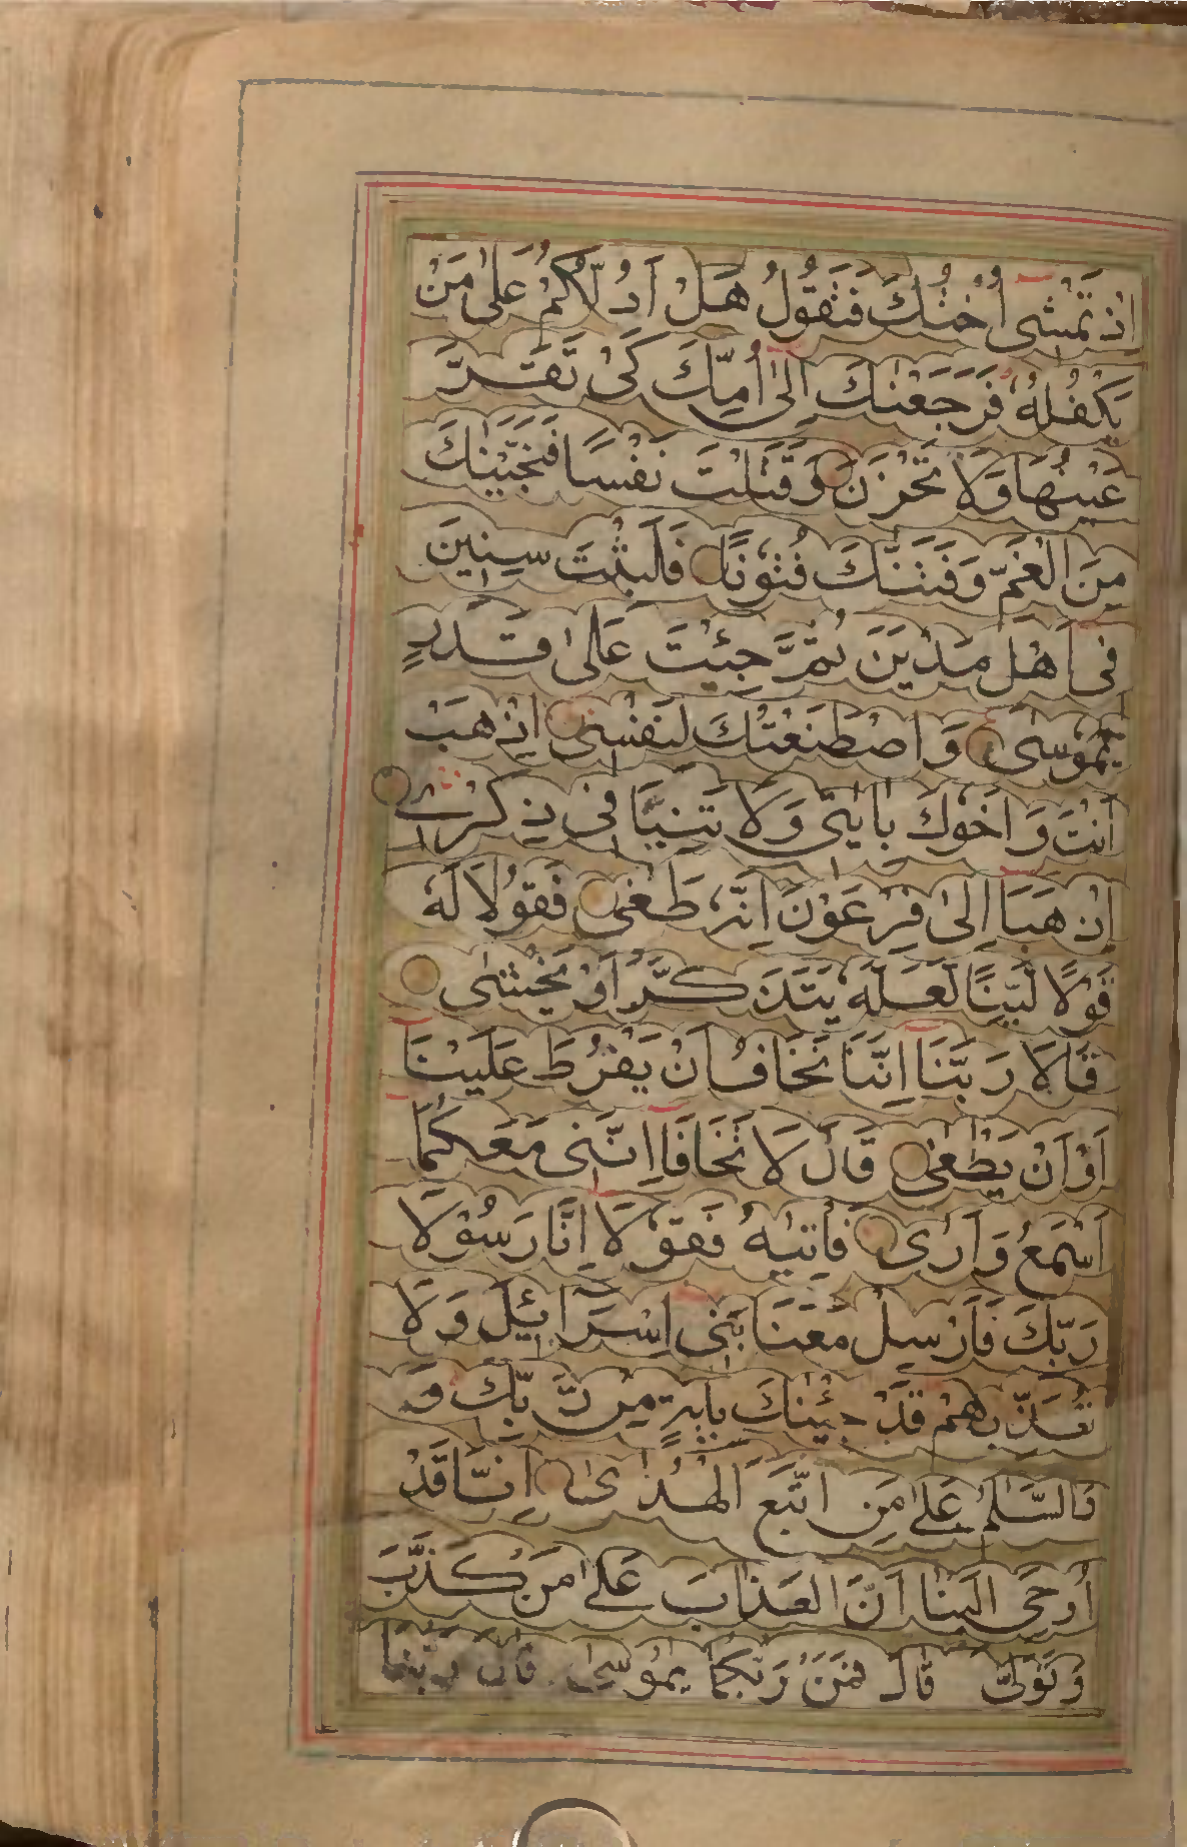 اِذْ تَمْشِى اُخْتُكَ فَتَقُوْلُ هَلْ اَدُلُّكُمْ عَلٰى مَنْ
يَكْفُلُهٗ فَرَجَعْنٰكَ اِلٰى اُمِّكَ كَىْ تَقَرَّ
عَيْنُهَا وَلَا تَحْزَنَ وَقَتَلْتَ نَفْسًا فَنَجَّيْنٰكَ
مِنَ الْغَمِّ وَفَتَنّٰكَ فُتُوْنًا فَلَبِثْتَ سِنِيْنَ
فِىْ اَهْلِ مَدْيَنَ ثُمَّ جِئْتَ عَلٰى قَدَرٍ
يّٰمُوْسٰى وَاصْطَنَعْتُكَ لِنَفْسِىْ اِذْهَبْ
اَنْتَ وَاَخُوْكَ بِاٰيٰتِىْ وَلَا تَنِيَا فِىْ ذِكْرِىْ
اِذْهَبَا اِلٰى فِرْعَوْنَ اِنَّهٗ طَغٰى فَقُوْلَا لَهٗ
قَوْلًا لَّيِّنًا لَعَلَّهٗ يَتَذَكَّرُ اَوْ يَخْشٰى
قَالَا رَبَّنَا اِنَّنَا نَخَافُ اَنْ يَفْرُطَ عَلَيْنَا
اَوْ اَنْ يَطْغٰى قَالَ لَا تَخَافَا اِنَّنِىْ مَعَكُمَا
اَسْمَعُ وَاَرٰى فَأْتِيٰهُ فَقُوْلَا اِنَّا رَسُوْلَا
رَبِّكَ فَاَرْسِلْ مَعَنَا بَنِىْ اِسْرَائِيْلَ وَلَا
تُعَذِّبْهُمْ قَدْ جِئْنٰكَ بِاٰيَةٍ مِنْ رَّبِّكَ وَ
وَالسَّلٰمُ عَلٰى مَنِ اتَّبَعَ الْهُدٰى اِنَّا قَدْ
اُوْحِىَ اِلَيْنَا اَنَّ الْعَذَابَ عَلٰى مَنْ كَذَّبَ
وَتَوَلّٰى قَالَ فَمَنْ رَبُّكُمَا يٰمُوْسٰى قَالَ رَبُّنَا